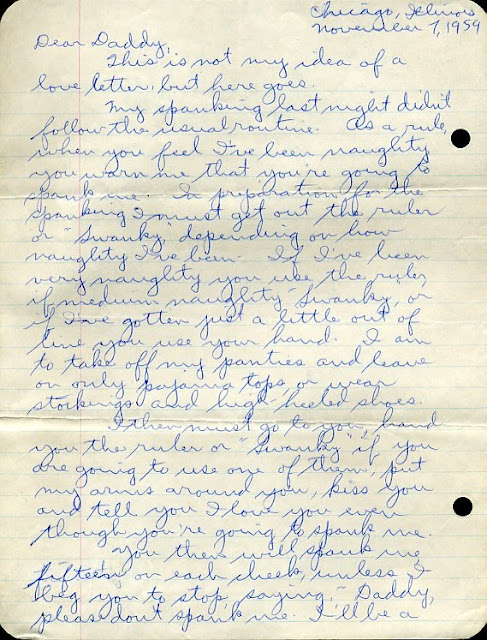 Chicago, Illinois
November 7, 1959
Dear Daddy,
This is not my idea of a
love letter, but here goes.
My spanking last night didn't
follow the usual routine. As a rule,
when you feel I've been naughty
you warn me that you're going to
spank me. In preparation for the
spanking I must get out the ruler
or "Swanky," depending on how
naughty I've been. If I've been
very naughty you use the ruler,
if medium naughty "Swanky," or
if I've gotten just a little out of
line you use your hand. I am
to take off my panties and leave
on only pajama tops or wear
stockings and high-heeled shoes.
I then must go to you, hand
you the ruler or "Swanky" if you
are going to use one of them, put
my arms around you, kiss you
and tell you I love you even
though you're going to spank me.
You then will spank me
fifteen on each cheek, unless I
beg you to stop saying, "Daddy,
please don't spank me. I'll be a